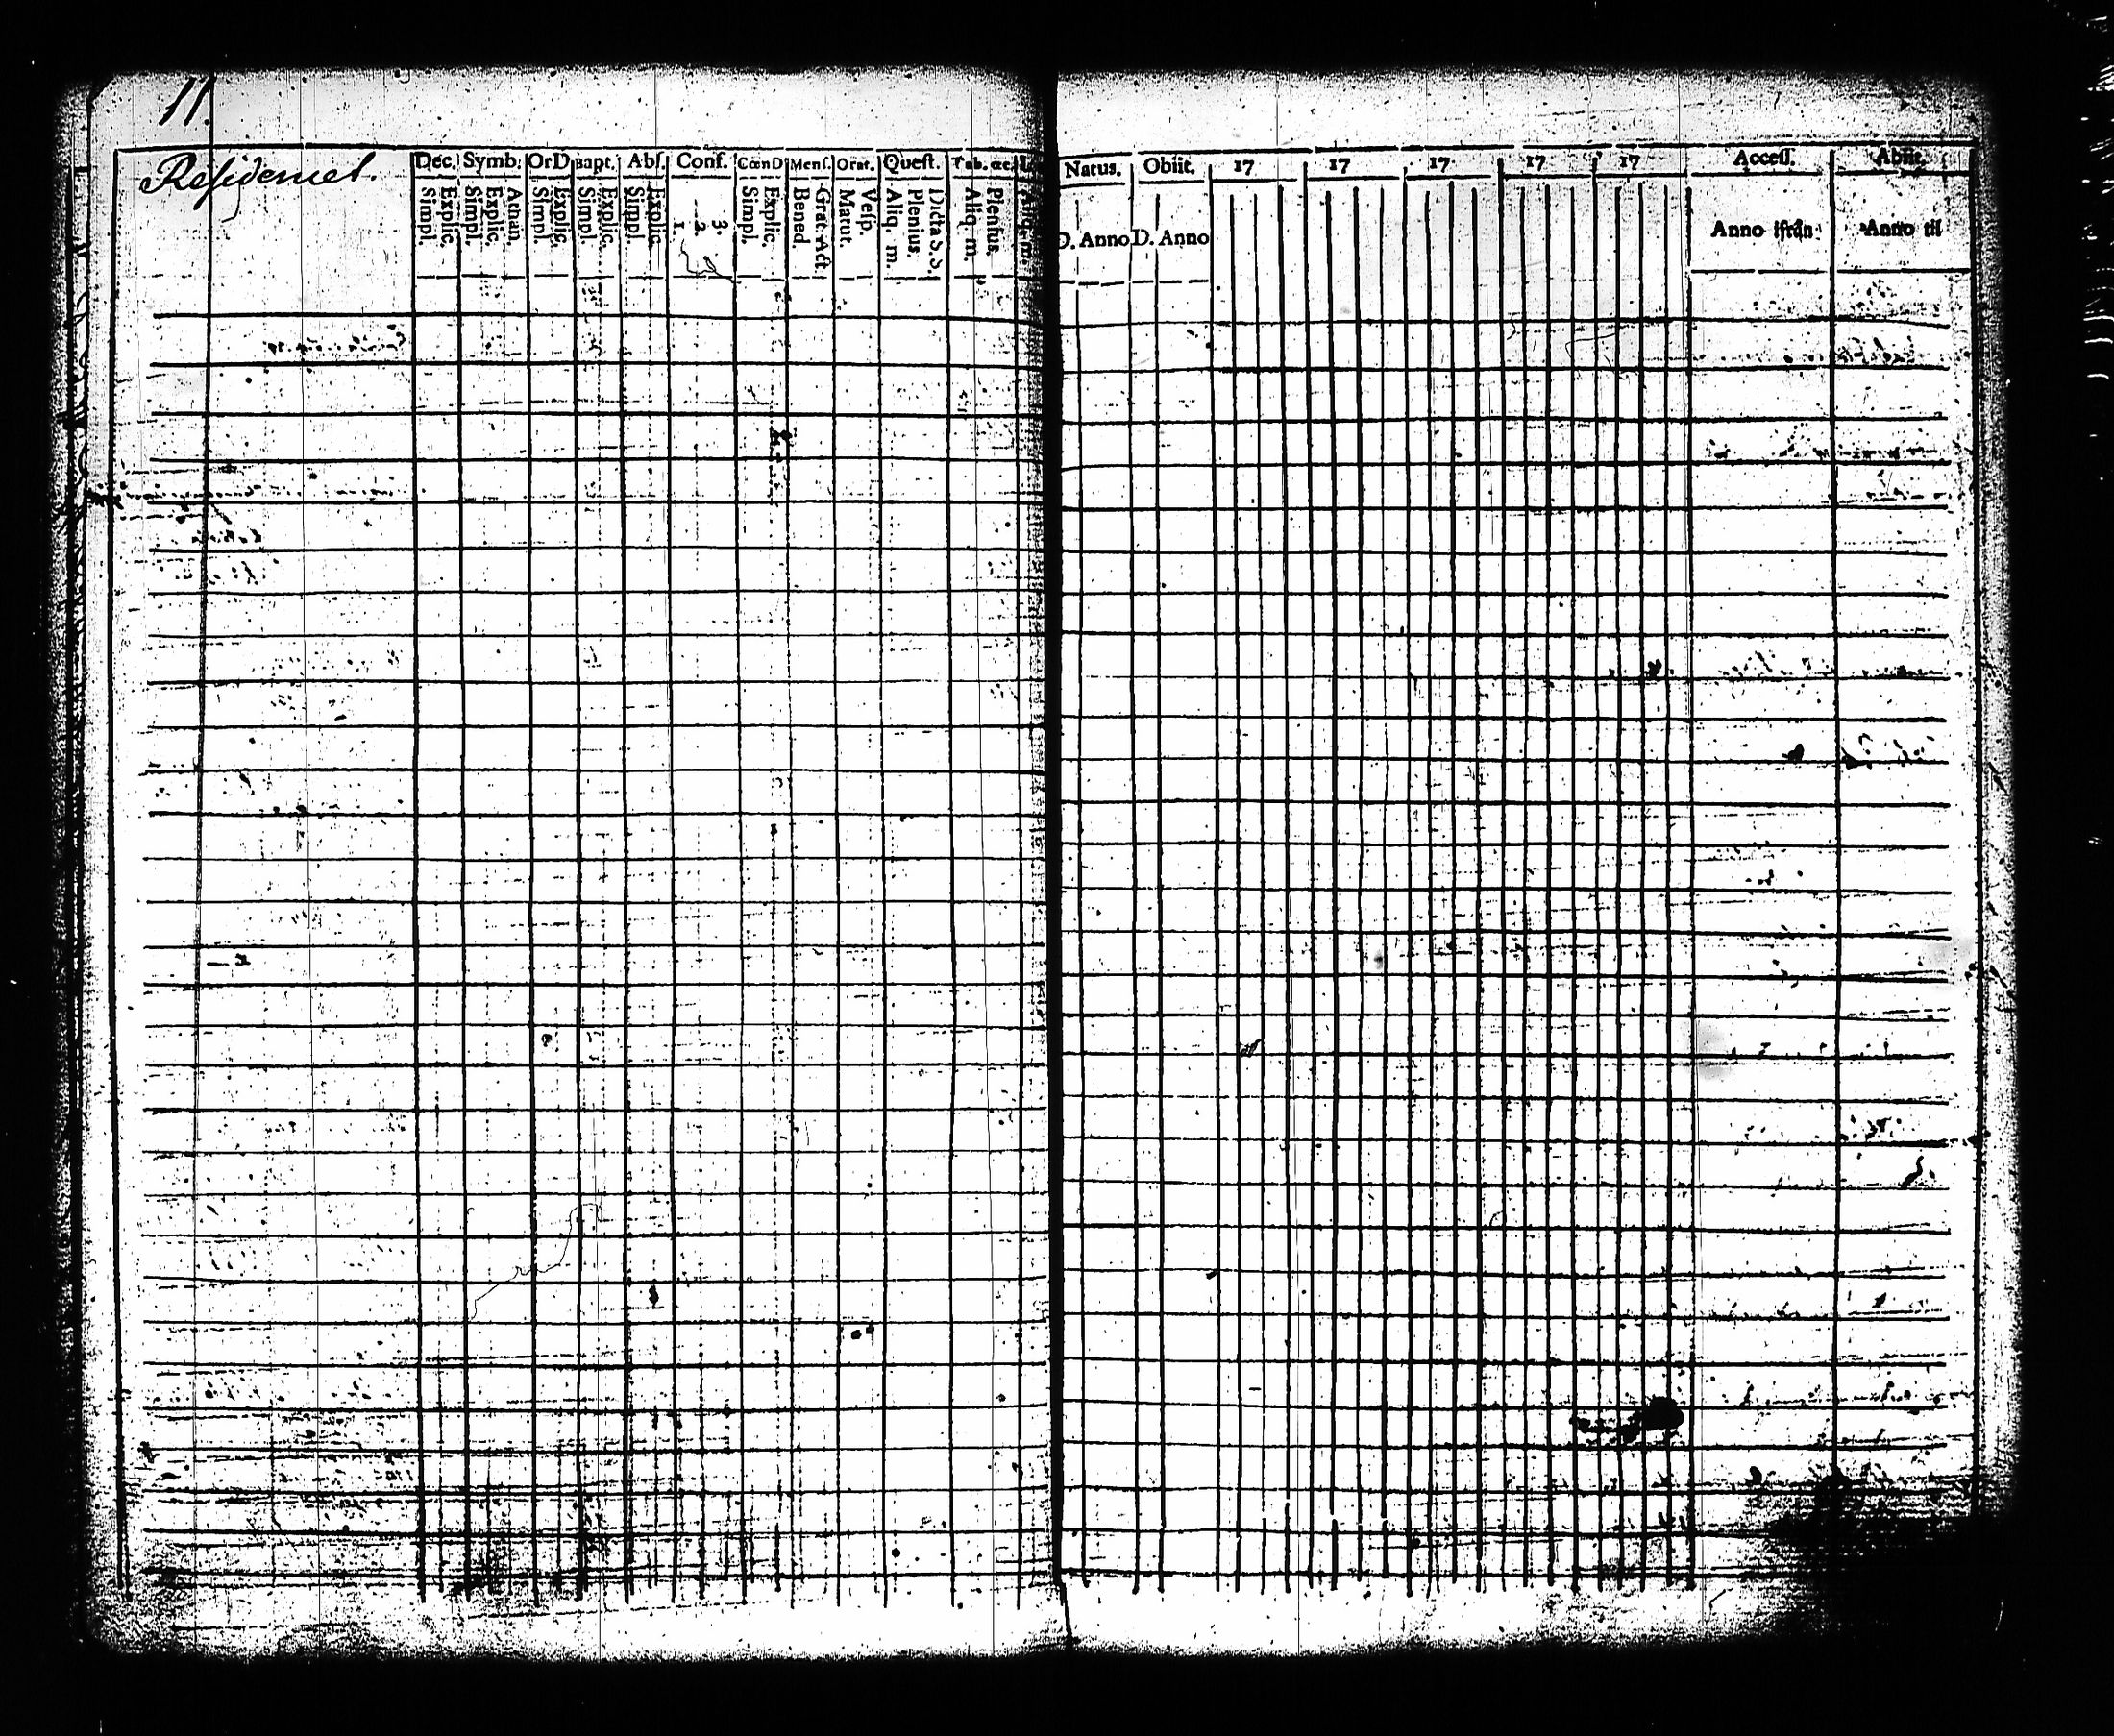 11.
Residencet.
Dec. Symb. OrD Bapt. Abſ. Conf. CœnD Menſ. Orat. Quæſt. Tab. œc.
Simpl. Explic. Simpl. Explic. Athan. Simpl. Explic. Simpl. Explic. Simpl. Explic. 1. 2. 3. Simpl. Explic. Bened. Grat. Act. Matut. Veſp. Aliq. m. Plenius. Dicta S.S. Aliq. m. Plenius. Aliq. m.
Natus. Obiit. 17 17 17 17 17 Acceſſ. Abiit.
D. Anno D. Anno Anno ifrån Anno til